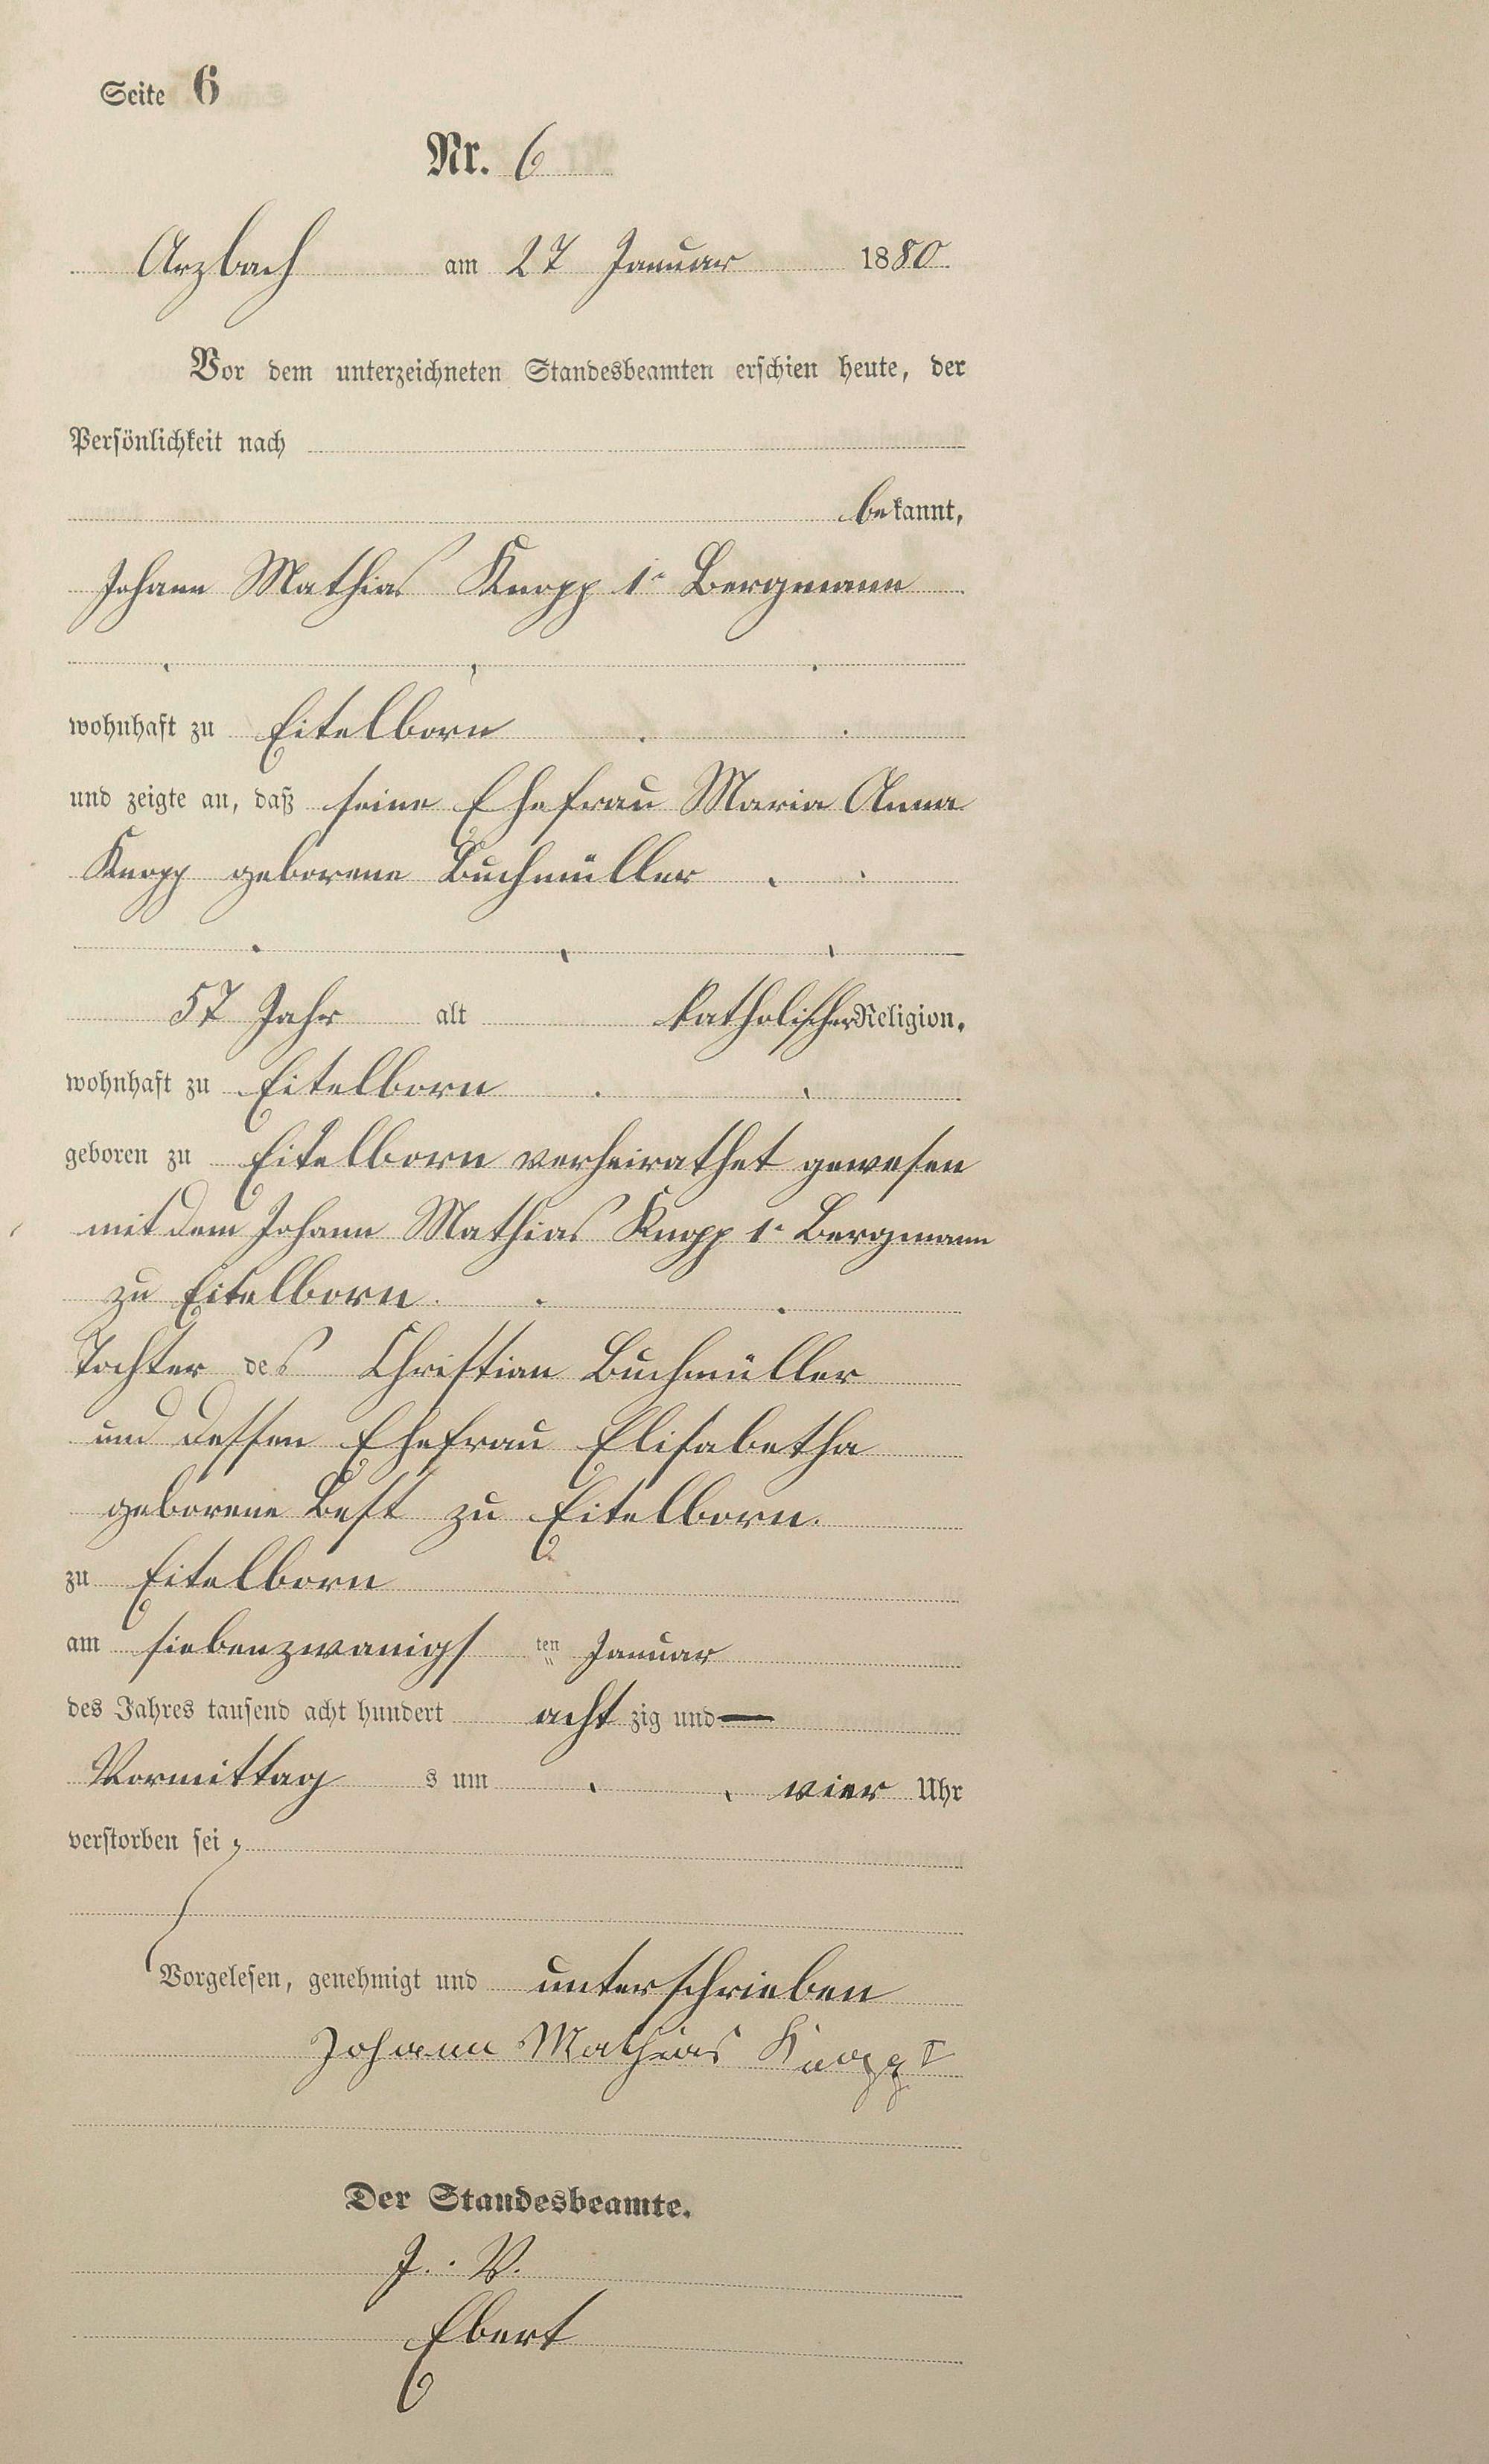 Seite 6
Nr. 6
Arzbach am 27 Januar 1880
Vor dem unterzeichneten Standesbeamten erschien heute, der
Persönlichkeit nach
bekannt,
Johann Mathias Knopp 1r Bergmann
wohnhaft zu Eitelborn
und zeigte an, daß seine Ehefrau Maria Anna
Knopp geborene Buchmüller
57 Jahr alt katholischer Religion,
wohnhaft zu Eitelborn
geboren zu Eitelborn verheirathet gewesen
mit dem Johann Mathias Knopp 1r Bergmann
zu Eitelborn.
Tochter des Christian Buchmüller
und dessen Ehefrau Elisabetha
geborene Best zu Eitelborn.
zu Eitelborn
am siebenzwanigs ten Januar
des Jahres tausend acht hundert acht zig und —
Vormittag s um vier Uhr
verstorben sei,
Vorgelesen, genehmigt und unterschrieben
Johann Mathias Knopp I
Der Standesbeamte.
J. V.
Ebert